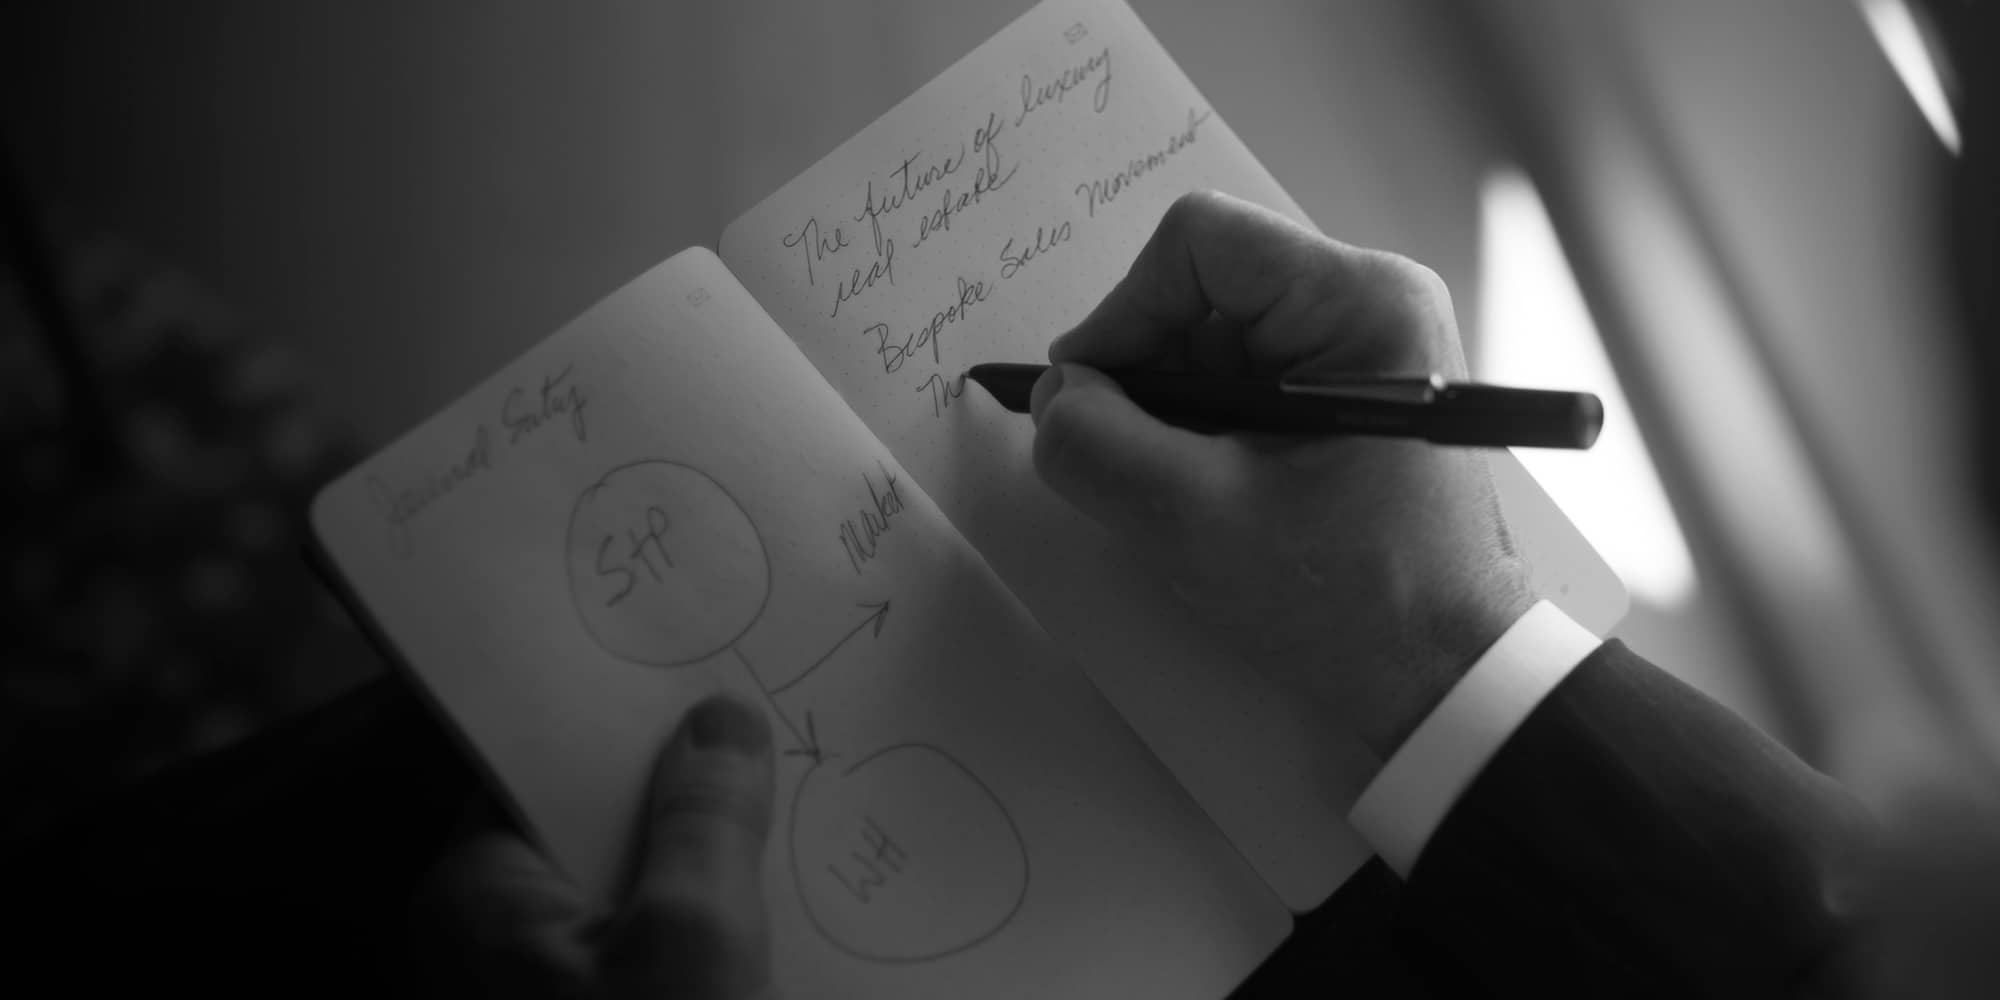 Journal Entry
STP
Market
WH
The future of luxury
real estate
Bespoke Sales Movement
The